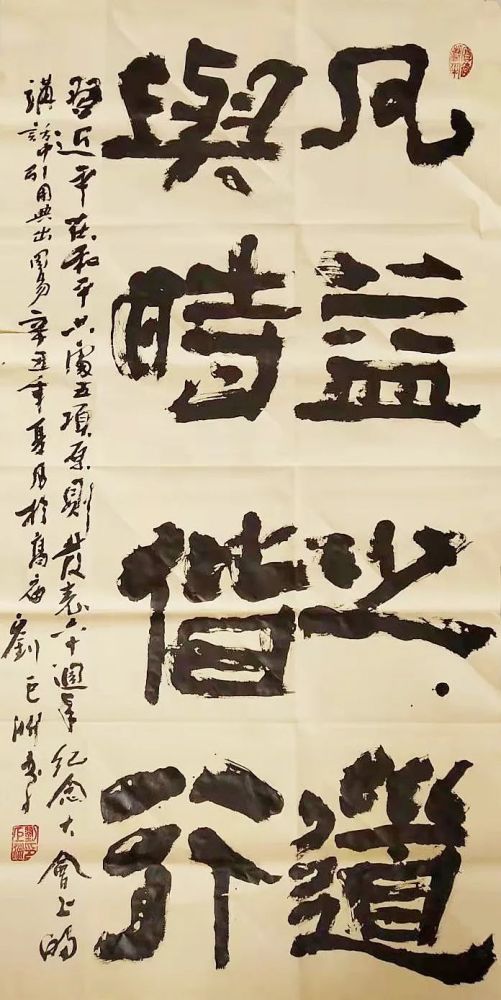 凡益之道
與時偕行
習近平在和平共處五項原則發表六十週年紀念大會上的
講話中引用典出周易辛丑年夏月於高庙劉